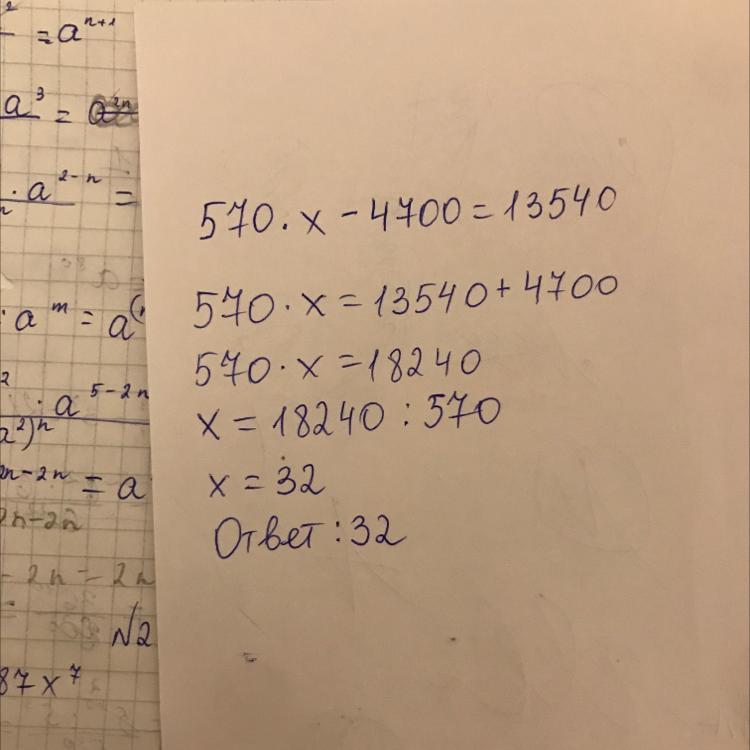 ² = a^{n+1}
a³ =
· a^{2-n} =
· a^m = a
² · a^{5-2n}
a²)ⁿ
2n-2n = a
2n-2n
- 2n = 2n
№2
87x⁷
570 · x - 4700 = 13540
570 · x = 13540 + 4700
570 · x = 18240
x = 18240 : 570
x = 32
Ответ : 32